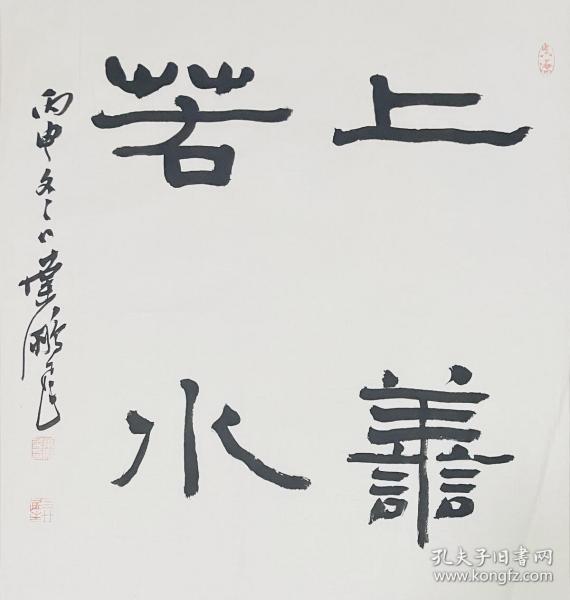 上善
若水
丙申冬
鹏
孔夫子旧书网
www.kongfz.com